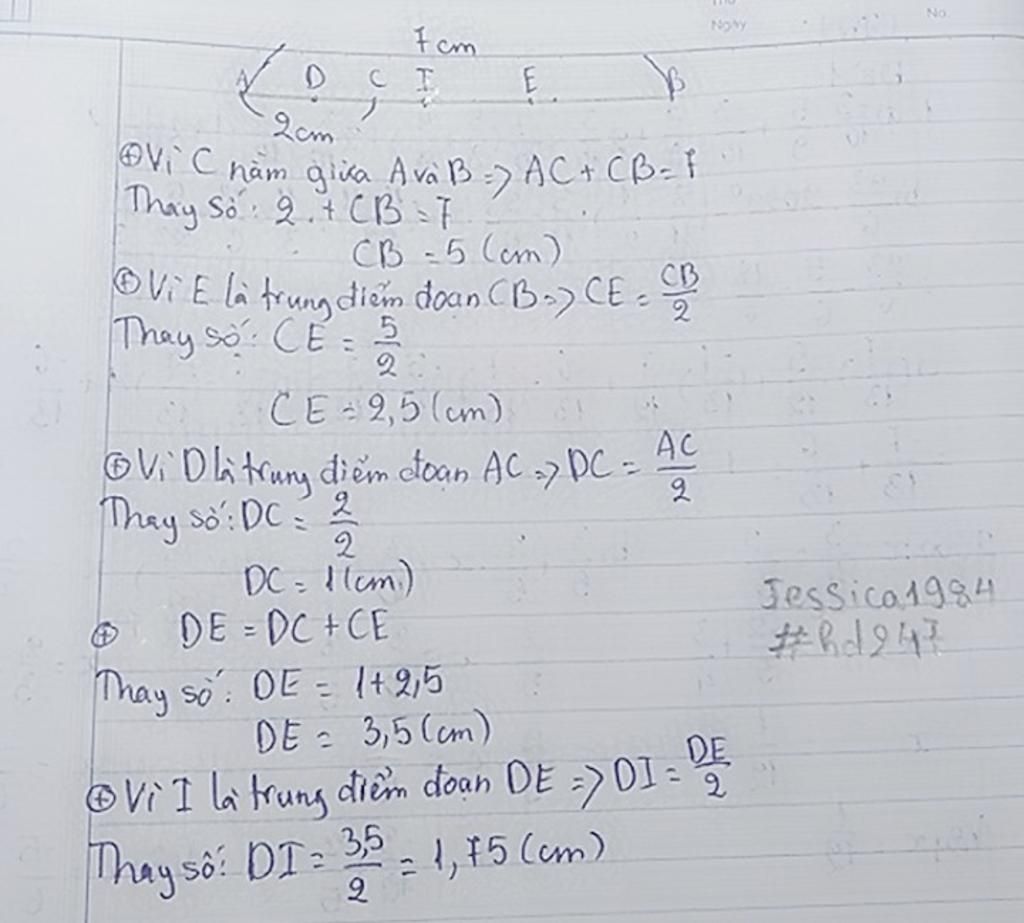 Ngày
No.
7 cm
A D C I E B
2cm
⊕ Vì C nằm giữa A và B => AC + CB = 7
Thay số: 2 + CB = 7
CB = 5 (cm)
⊕ Vì E là trung điểm đoạn CB => CE = CB/2
Thay số: CE = 5/2
CE = 2,5 (cm)
⊕ Vì D là trung điểm đoạn AC => DC = AC/2
Thay số: DC = 2/2
DC = 1 (cm)
⊕ DE = DC + CE
Thay số: DE = 1 + 2,5
DE = 3,5 (cm)
Jessica1984
#hd247
⊕ Vì I là trung điểm đoạn DE => DI = DE/2
Thay số: DI = 3,5/2 = 1,75 (cm)